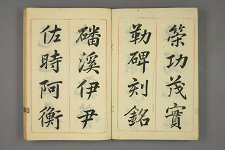 策功茂實
勒碑刻銘
磻溪伊尹
佐時阿衡